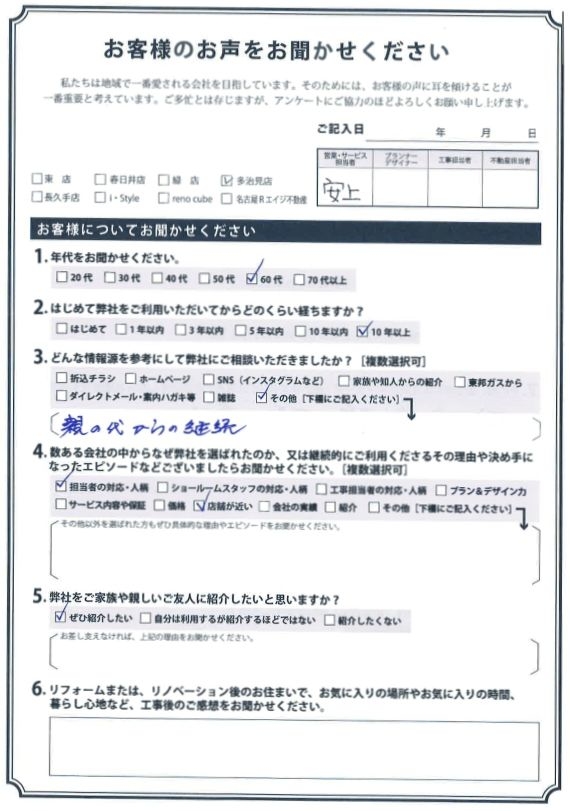 お客様のお声をお聞かせください
私たちは地域で一番愛される会社を目指しています。そのためには、お客様の声に耳を傾けることが
一番重要と考えています。ご多忙とは存じますが、アンケートにご協力のほどよろしくお願い申し上げます。
ご記入日 年 月 日
営業・サービス担当者 プランナーデザイナー 工事担当者 不動産担当者
安上
□東 店 □春日井店 □緑 店 ☑多治見店
□長久手店 □i・Style □reno cube □名古屋Rエイジ不動産
お客様についてお聞かせください
1. 年代をお聞かせください。
□20代 □30代 □40代 □50代 ☑60代 □70代以上
2. はじめて弊社をご利用いただいてからどのくらい経ちますか？
□はじめて □1年以内 □3年以内 □5年以内 □10年以内 ☑10年以上
3. どんな情報源を参考にして弊社にご相談いただきましたか？［複数選択可］
□折込チラシ □ホームページ □SNS（インスタグラムなど） □家族や知人からの紹介 □東邦ガスから
□ダイレクトメール・案内ハガキ等 □雑誌 ☑その他［下欄にご記入ください］
親の代からの継続
4. 数ある会社の中からなぜ弊社を選ばれたのか、又は継続的にご利用くださるその理由や決め手に
なったエピソードなどございましたらお聞かせください。［複数選択可］
☑担当者の対応・人柄 □ショールームスタッフの対応・人柄 □工事担当者の対応・人柄 □プラン＆デザイン力
□サービス内容や保証 □価格 ☑店舗が近い □会社の実績 □紹介 □その他［下欄にご記入ください］
その他以外を選ばれた方もぜひ具体的な理由やエピソードをお聞かせください。
5. 弊社をご家族や親しいご友人に紹介したいと思いますか？
☑ぜひ紹介したい □自分は利用するが紹介するほどではない □紹介したくない
お差し支えなければ、上記の理由をお聞かせください。
6. リフォームまたは、リノベーション後のお住まいで、お気に入りの場所やお気に入りの時間、
暮らし心地など、工事後のご感想をお聞かせください。